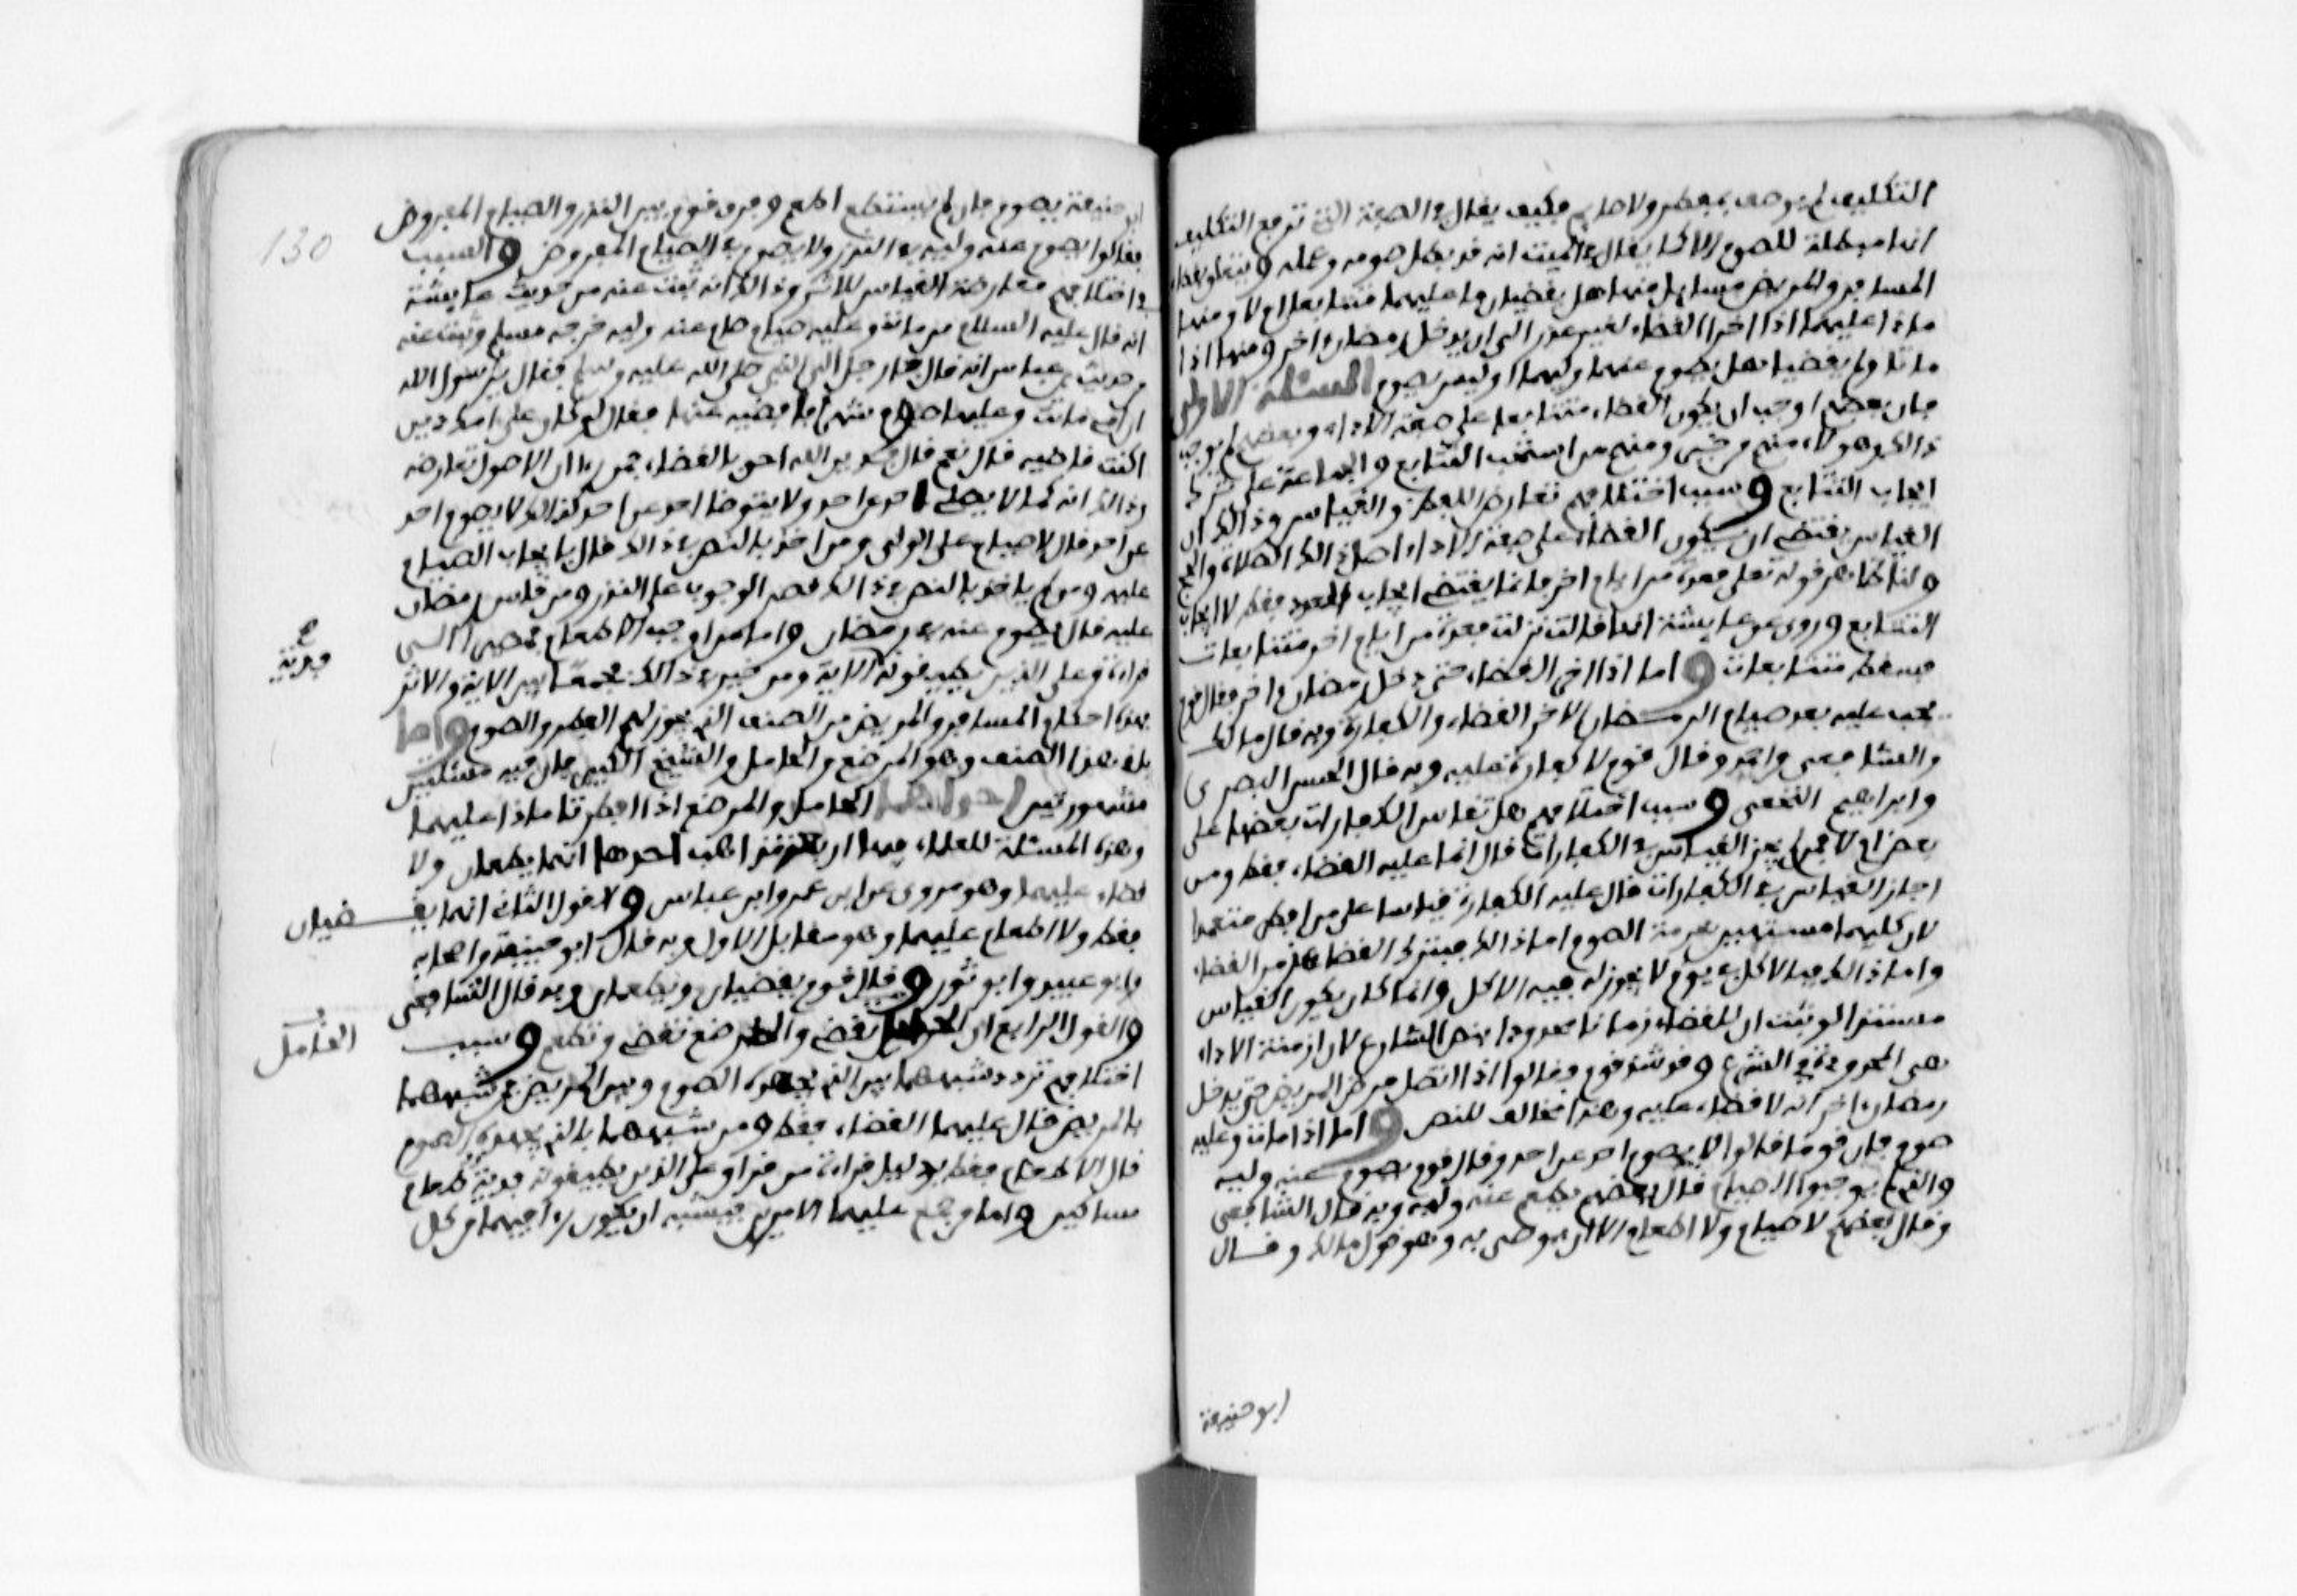 التكليف لم يوصف بمفطر ولا صايم فكيف يقال في الصفة التي ترفع التكليف
انها مبطلة للصوم الا كما يقال في الميت انه قد بطل صومه وعمله ويتعلق بقضاء
المسافر والمريض مسايل منها هل يقضيان ما عليهما متتابعا ام لا ومنها
ماذا عليهما اذا اخرا القضاء لغير عذر الى ان يدخل رمضان اخر ومنها اذا
ماتا ولم يقضيا هل يصوم عنهما وليهما او ليس يصوم المسئلة الاولى
فان بعضهم اوجب ان يكون القضاء متتابعا على صفة الاداء وبعضهم لم يوجب
ذالك وهولاء منهم من خير ومنهم من استحب التتابع والجماعة على ترك
ايجاب التتابع وسبب اختلافهم تعارض اللفظ والقياس وذالك ان
القياس يقتضي ان يكون القضاء على صفة الاداء اصل ذالك الصلاة والحج
ولنا ظاهر قوله تعلى فعدة من ايام اخر فانما يقتضي ايجاب العدد فقط لا ايجاب
التتابع وروي عن عايشة انها قالت نزلت فعدة من ايام اخر متتابعات
فسقط متتابعات واما اذا اخر القضاء حتى دخل رمضان اخر فقال قوم
يجب عليه بعد صيام الرمضان الاخر القضاء والكفارة وبه قال مالك
والشافعي واحمد وقال قوم لا كفارة عليه وبه قال الحسن البصري
وابراهيم النخعي وسبب اختلافهم هل تقاس الكفارات بعضها على
بعض ام لا فمن لم يجز القياس في الكفارات قال انما عليه القضاء فقط ومن
اجاز القياس في الكفارات قال عليه الكفارة قياسا على من افطر متعمدا
لان كليهما مستهين بحرمة الصوم اما ذالك فبترك القضاء زمن القضاء
واما ذالك فبالاكل في يوم لا يجوز له فيه الاكل وانما كان يكون القياس
مستندا لو ثبت ان للقضاء زمانا محدودا بنص الشارع لان ازمنة الاداء
هي المحدودة في الشرع وقد شذ قوم وقالوا اذا اتصل مرض المريض حتى يدخل
رمضان اخر انه لا قضاء عليه وهذا مخالف للنص واما اذا مات وعليه
صوم فان قوما قالوا لا يصوم احد عن احد وقال قوم يصوم عنه وليه
والذين لم يوجبوا الصيام قال بعضهم يطعم عنه وليه وبه قال الشافعي
وقال بعضهم لا صيام ولا اطعام الا ان يوصي به وهو قول مالك وقال
ابو حنيفة
130
ابو حنيفة يصوم فان لم يستطع اطعم وفرق قوم بين النذر والصيام المفروض
فقالوا يصوم عنه وليه في النذر ولا يصوم في الصيام المفروض والسبب
في اختلافهم معارضة القياس للاثر وذالك انه ثبت عنه من حديث عايشة
انه قال عليه السلام من مات وعليه صيام صام عنه وليه خرجه مسلم وثبت عنه
من حديث بن عباس انه قال جاء رجل الى النبي صلى الله عليه وسلم فقال يرسول الله
ان امي ماتت وعليها صوم شهر افاقضيه عنها فقال لو كان على امك دين
اكنت قاضيه قال نعم قال فدين الله احق بالقضاء فمن راى ان الاصول تعارضه
وذالك انه كما لا يصلي احد عن احد ولا يتوضا احد عن احد كذالك لا يصوم احد
عن احد قال لا صيام على الولي ومن اخذ بالنص في ذالك قال بايجاب الصيام
عليه ومن لم ياخذ بالنص في ذالك قصر الوجوب على النذر ومن قاس رمضان
عليه قال يصوم عنه في رمضان واما من اوجب الاطعام فمصيرا الى
قراءة وعلى الذين يطيقونه الاية ومن خير في ذالك فجمعا بين الاية والاثر
فدية
فهذه احكام المسافر والمريض من الصنف الذي يجوز لهم الفطر والصوم واما
باقي هذا الصنف وهو المرضع والحامل والشيخ الكبير فان فيه مسئلتين
مشهورتين احداهما الحامل والمرضع اذا افطرتا ماذا عليهما
وهذه المسئلة للعلماء فيها اربعة مذاهب احدها انهما يطعمان ولا
قضاء عليهما وهو مروي عن ابن عمر وابن عباس والقول الثاني انهما يقضيان
فقط ولا اطعام عليهما وهو مقابل الاول وبه قال ابو حنيفة واصحابه
وابو عبيد وابو ثور وقال قوم يقضيان ويطعمان وبه قال الشافعي
والقول الرابع ان الحامل تقضي والمرضع تقضي وتطعم وسبب
الحامل
اختلافهم تردد شبههما بين الذي يجهده الصوم وبين المريض فمن شبههما
بالمريض قال عليهما القضاء فقط ومن شبههما بالذي يجهده الصوم
قال الاطعام فقط بدليل قراءة من قرا وعلى الذين يطيقونه فدية طعام
مساكين واما من جمع عليهما الامرين فيشبه ان يكون راى فيهما من كل